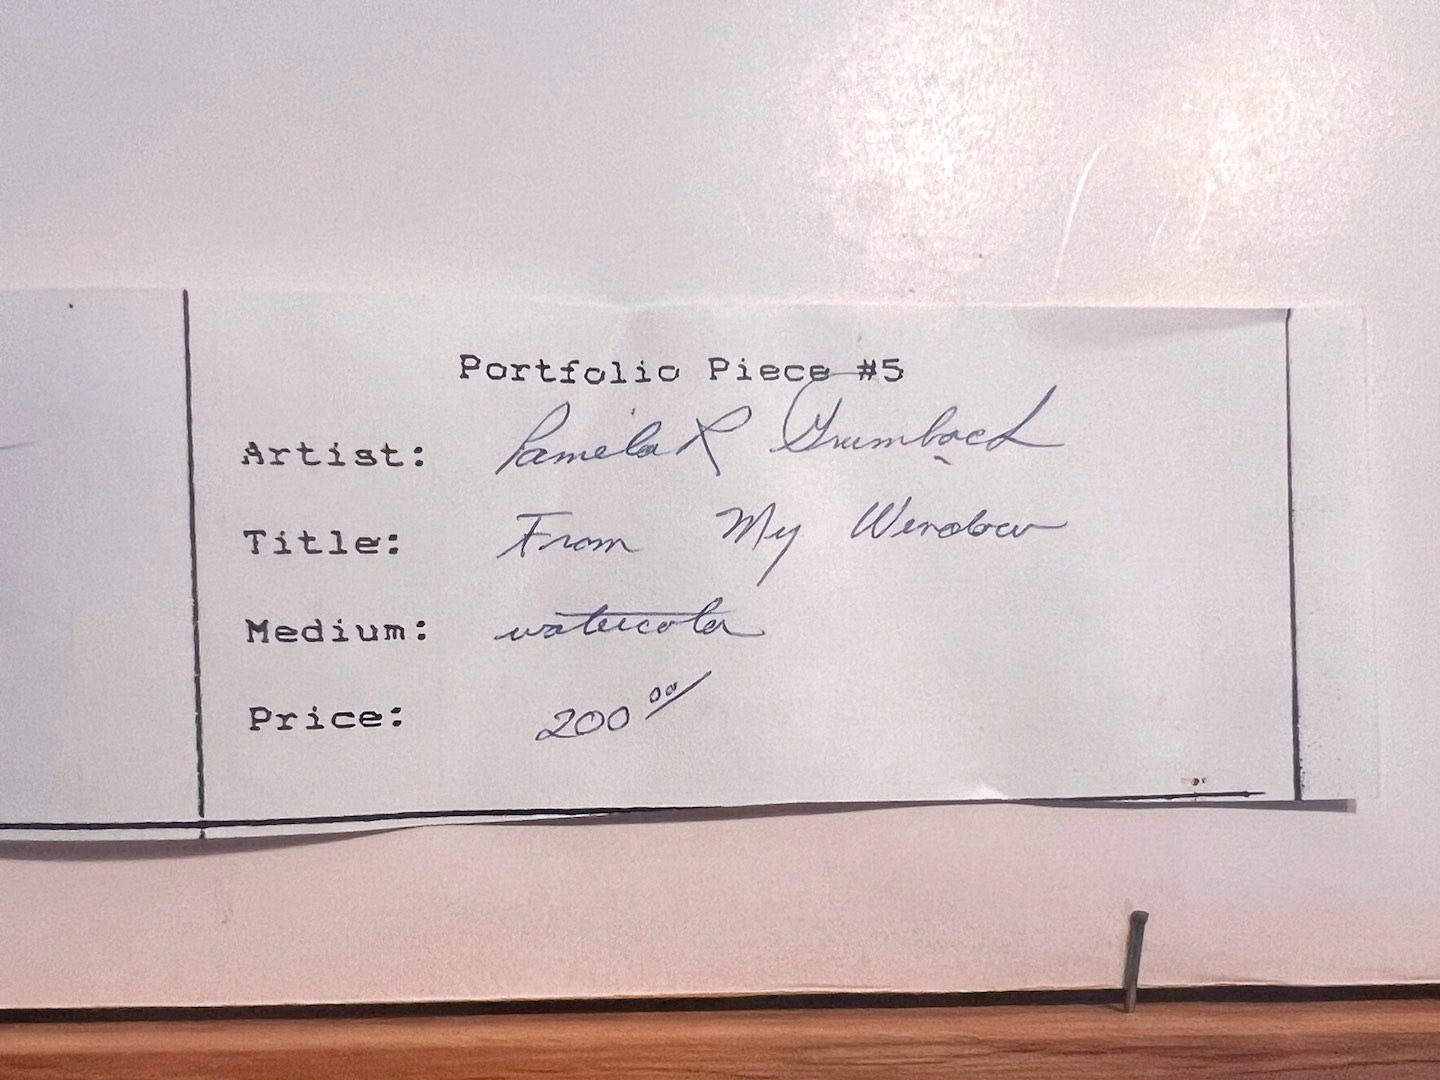 Portfolio Piece #5
Artist: Pamela R Grumbach
Title: From My Window
Medium: watercolor
Price: 200 00/